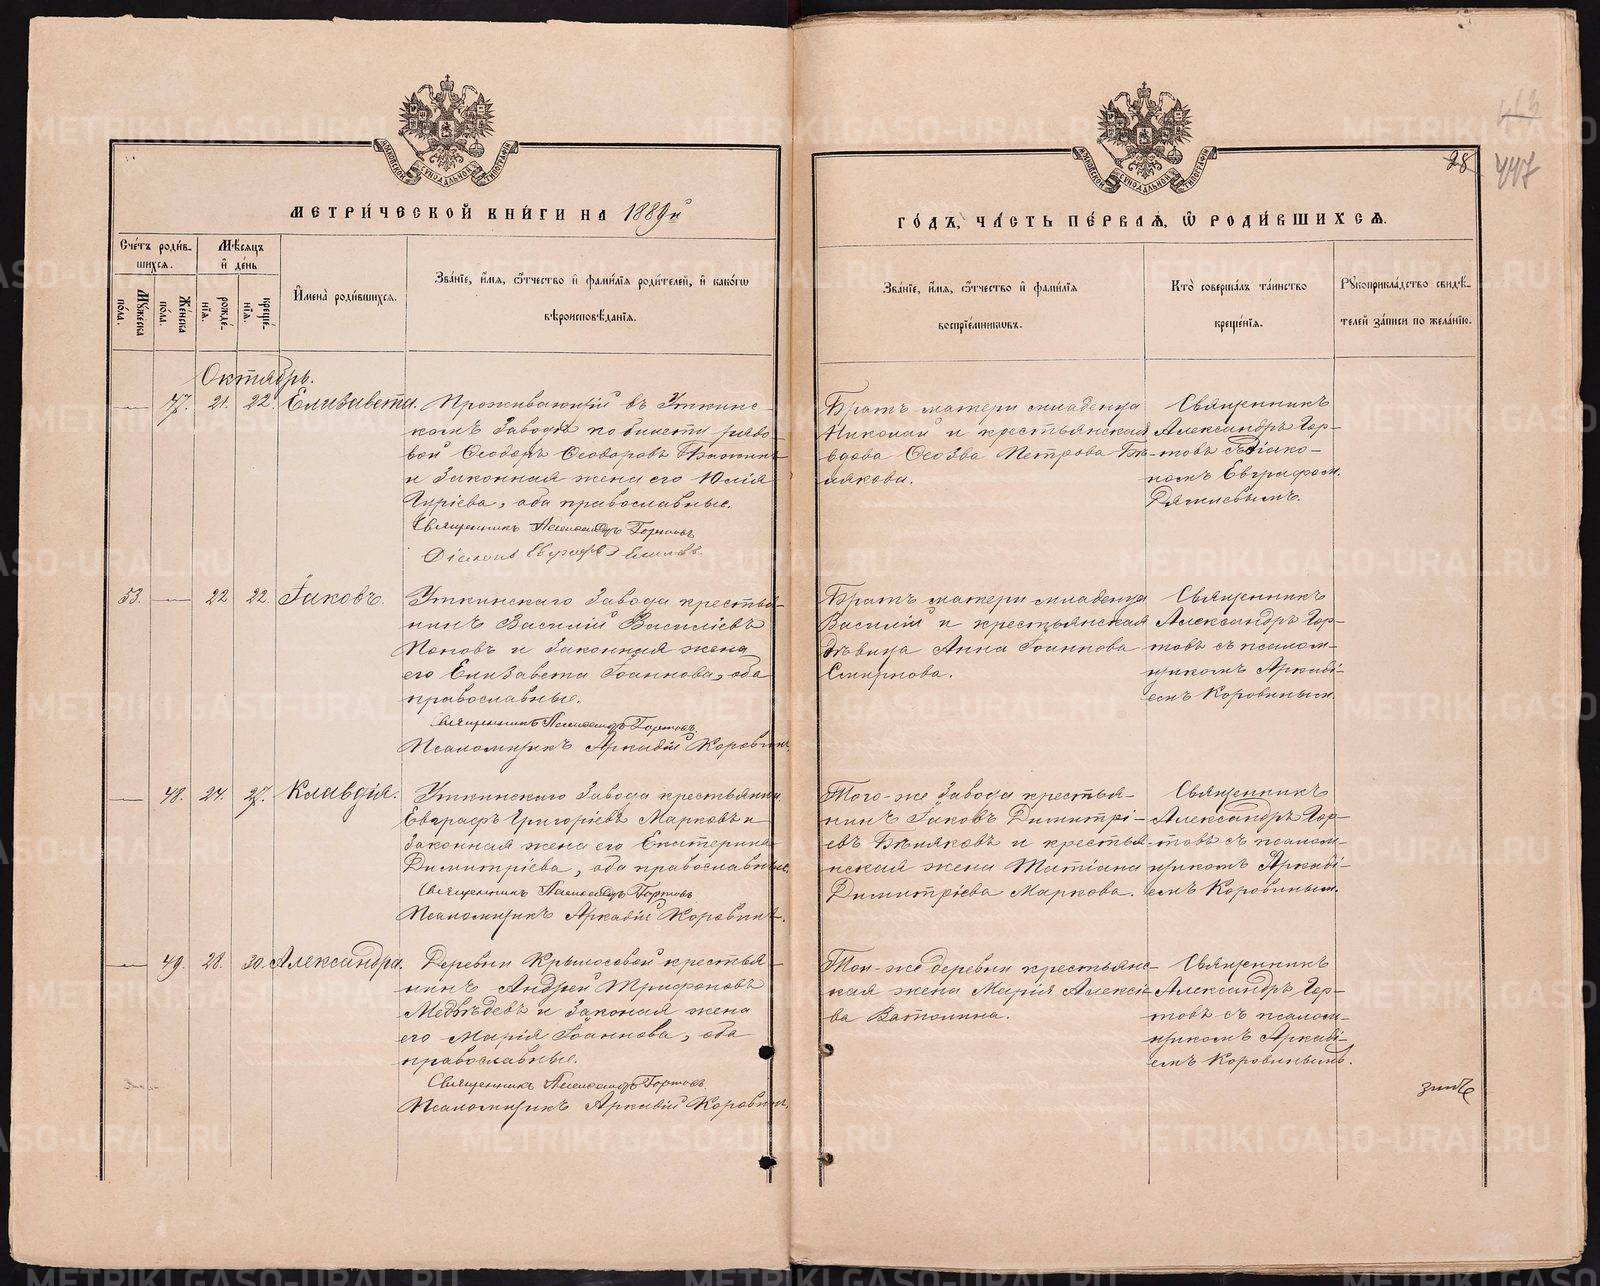 МЕТРИ́ЧЕСКОЙ КНИ́ГИ НА 1889й
Сче́тъ роди́в-
шихся.
Мѣ́сяцъ
й де́нь
Му́жеска
по́ла.
Же́нска
по́ла.
рожде́-
нїя.
креще́-
нїя.
И҆мена̀ роди́вшихся.
Зва́нїе, и҆́мя, ѻ҆́тчество й фами́лїя роди́телей, й како́гѡ
вѣроисповѣ́данїя.
Октябрь.
47. 21. 22. Елизавета.
Проживающій въ Уткинс-
комъ Заводѣ по билету рядо-
вой Ѳеодоръ Ѳеодоровъ
и законная жена его Юлія
Гуріева, оба православные.
Священникъ Александръ Гортовъ
Діаконъ Евграфъ
53. 22. 22. Іаковъ.
Уткинскаго Завода крестья-
нинъ Василій Василіевъ
Поповъ и законная жена
его Елизавета Іоаннова, оба
православные.
Священникъ Александръ Гортовъ.
Псаломщикъ Аркадій Коровинъ.
48. 24. 27. Клавдія.
Уткинскаго Завода крестьянинъ
Евграфъ Григоріевъ Марковъ и
законная жена его Екатерина
Димитріева, оба православные.
Священникъ Александръ Гортовъ
Псаломщикъ Аркадій Коровинъ.
49. 28. 30. Александра.
Деревни Крылосовой крестья-
нинъ Андрей Трифоновъ
Медвѣдевъ и законая жена
его Марія Іоаннова, оба
православные.
Священникъ Александръ Гортовъ.
Псаломщикъ Аркадій Коровинъ.
28
447
ГО́ДЪ, ЧА́СТЬ ПЕ́РВАЯ, Ѡ҆ РОДИ́ВШИХСЯ.
Зва́нїе, и҆́мя, ѻ҆́тчество й фами́лїя
воспрїе́мниковъ.
Кто̀ соверша́лъ та́инство
креще́нїя.
Рꙋкоприкла́дство свидѣ́-
телей за́писи по жела́нїю.
Братъ матери младенца
Николай и крестьянская
вдова Ѳеозва Петрова Бѣ-
лякова.
Священникъ
Александръ Гор-
товъ съ діако-
номъ Евграфом
Братъ матери младенца
Василій и крестьянская
дѣвица Анна Іоаннова
Смирнова.
Священникъ
Александръ Гор-
товъ съ псалом-
щикомъ Аркаді-
емъ Коровиным.
Того-же Завода крестья-
нинъ Іаковъ Димитрі-
евъ Бѣляковъ и крестья-
нская жена Татіана
Димитріева Маркова.
Священникъ
Александръ Гор-
товъ съ псалом-
щикомъ Аркаді-
емъ Коровиным.
Той-же деревни крестьянс-
кая жена Марія Алексѣе-
ва Ватолина.
Священникъ
Александръ Гор-
товъ съ псалом-
щикомъ Аркаді-
емъ Коровинымъ.
METRIKI.GASO-URAL.RU